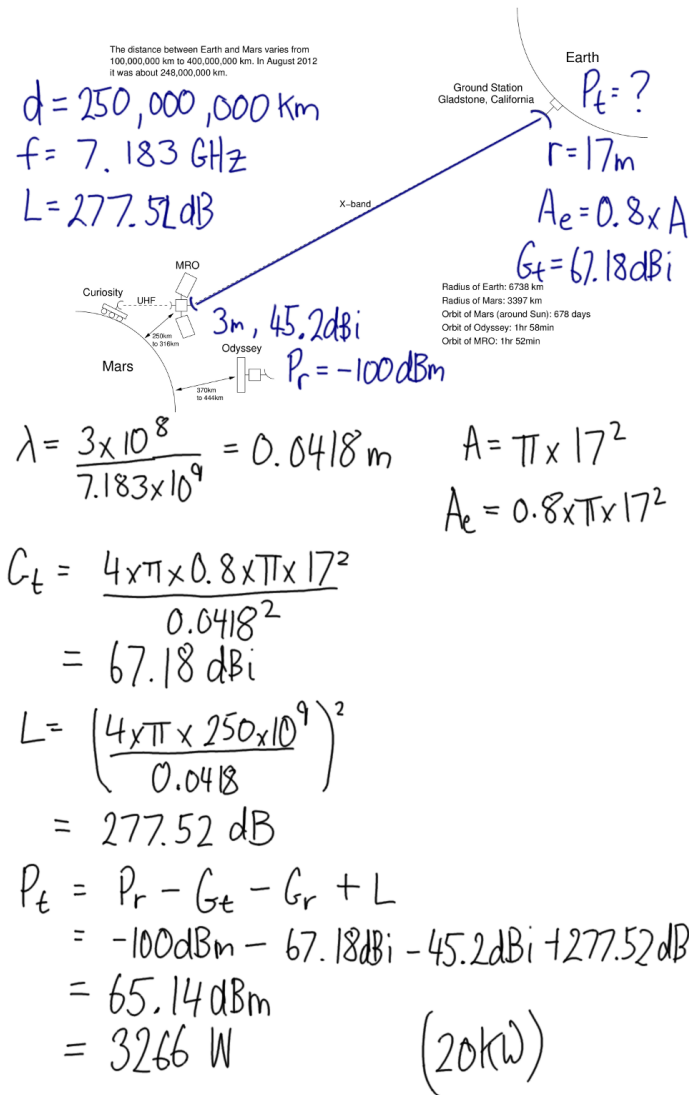 The distance between Earth and Mars varies from
100,000,000 km to 400,000,000 km. In August 2012
it was about 248,000,000 km.
Earth
Ground Station
Gladstone, California
Pt = ?
d = 250,000,000 Km
f = 7.183 GHz
L = 277.52 dB
r = 17m
Ae = 0.8 x A
Gt = 67.18 dBi
X−band
MRO
Curiosity
UHF
250km
to 316km
Mars
3m, 45.2dBi
Pr = -100 dBm
Odyssey
370km
to 444km
Radius of Earth: 6738 km
Radius of Mars: 3397 km
Orbit of Mars (around Sun): 678 days
Orbit of Odyssey: 1hr 58min
Orbit of MRO: 1hr 52min
λ = 3x10^8 / 7.183x10^9 = 0.0418 m
A = π x 17²
Ae = 0.8xπx17²
Gt = 4xπx0.8xπx17² / 0.0418²
= 67.18 dBi
L = (4xπx250x10^9 / 0.0418)²
= 277.52 dB
Pt = Pr - Gt - Gr + L
= -100dBm - 67.18dBi - 45.2dBi + 277.52dB
= 65.14 dBm
= 3266 W
(20KW)